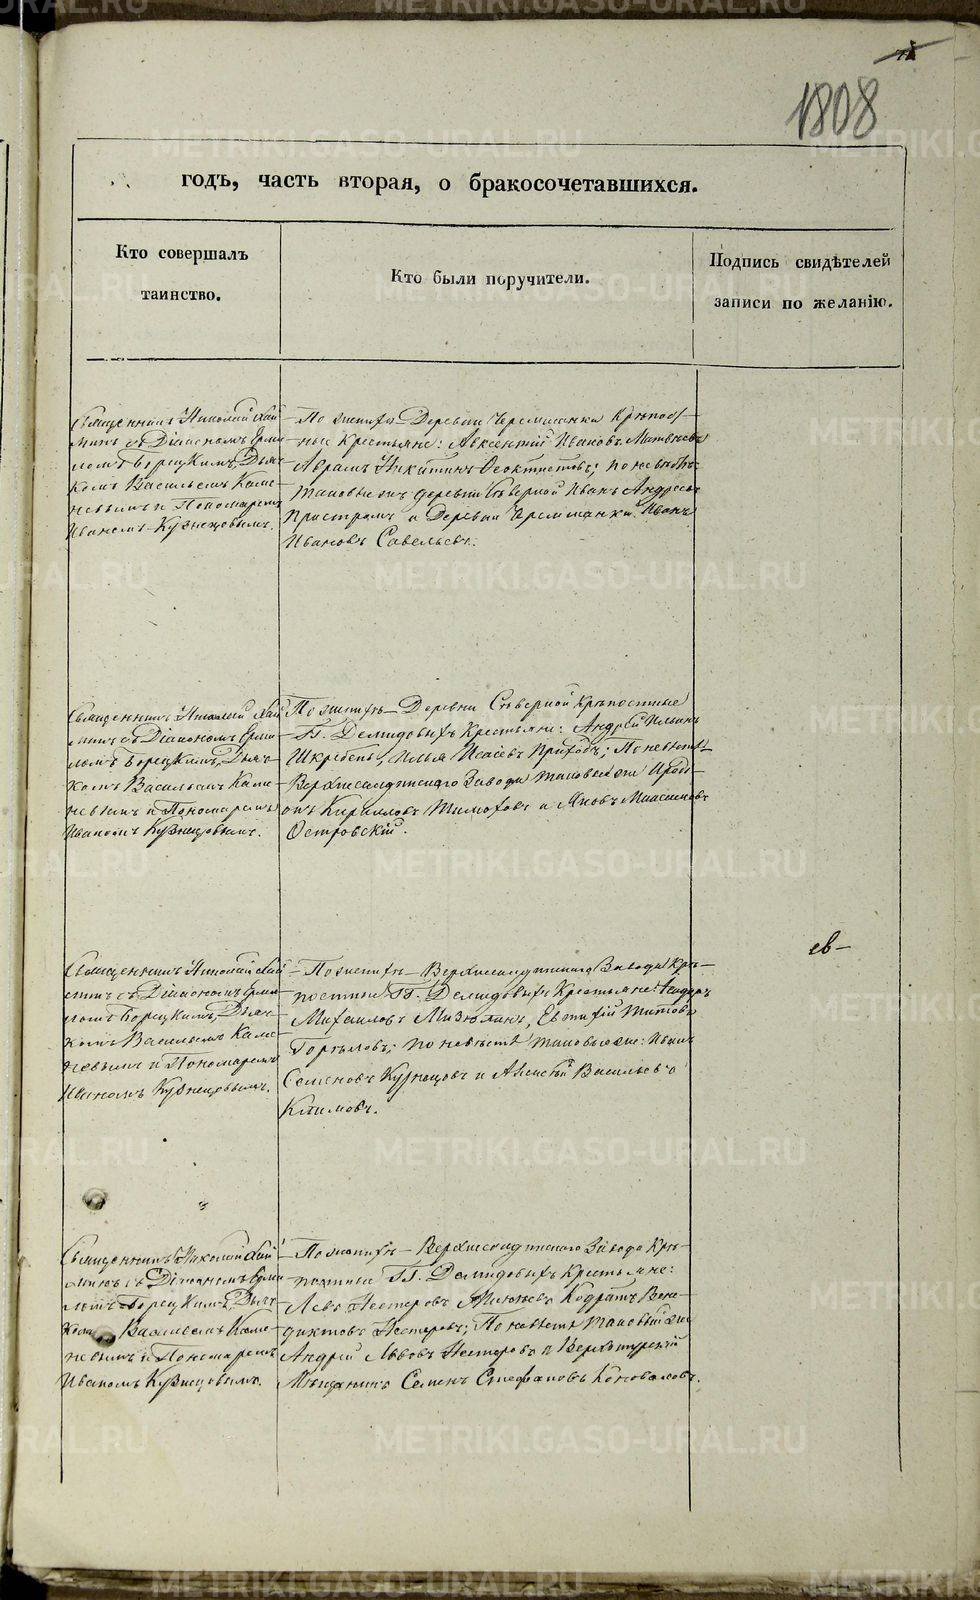 1808
годъ, часть вторая, о бракосочетавшихся.
Кто совершалъ
таинство.
Кто были поручители.
Подпись свидѣтелей
записи по желанію.
Священникъ Николай
съ Діакономъ
Борецкимъ, Дьяч-
комъ Васильемъ Каме-
невымъ и Пономаремъ
Иваномъ Кузнецовымъ.
По женихѣ Деревни Черемшанки Крѣпост-
ные Крестьяне: Авксентій Ивановъ
Аврамъ Никитинъ Ѳеоктистовъ; по невѣстѣ
таковые же деревни Сѣверной Иванъ Андреевъ
и Деревни Черемшанки Иванъ
Ивановъ Савельевъ.
Священникъ Николай
съ Діакономъ
Борецкимъ, Дьяч-
комъ Васильемъ Каме-
невымъ и Пономаремъ
Иваномъ Кузнецовымъ.
По женихѣ Деревни Сѣверной Крѣпостные
Гг. Демидовыхъ Крестьяне: Андрей Ильинъ
Илья Исаевъ По невѣстѣ
Верхнесалдинскаго Завода таковые же
Кириловъ Тимофеевъ и Яковъ Максимовъ
Островскій.
ев-
Священникъ Николай
съ Діакономъ
Борецкимъ, Дьяч-
комъ Васильемъ Каме-
невымъ и Пономаремъ
Иваномъ Кузнецовымъ.
По женихѣ Верхнесалдинскаго Завода Крѣ-
постные Гг. Демидовыхъ Крестьяне: Ѳеодоръ
Михайловъ Евтихій Титовъ
по невѣстѣ таковые же: Иванъ
Семеновъ Кузнецовъ и Алексѣй Васильевъ
Климовъ.
Священникъ Николай
съ Діакономъ
Борецкимъ, Дьяч-
комъ Васильемъ Каме-
невымъ и Пономаремъ
Иваномъ Кузнецовымъ.
По женихѣ Верхнесалдинскаго Завода Крѣ-
постные Гг. Демидовыхъ Крестьяне:
Левъ Нестеровъ Кодратъ Вене-
диктовъ Нестеровъ; По невѣстѣ таковый же
Андрей Львовъ Нестеровъ и Верхотурскій
Мѣщанинъ Семенъ Стефановъ Коноваловъ.
METRIKI.GASO-URAL.RU